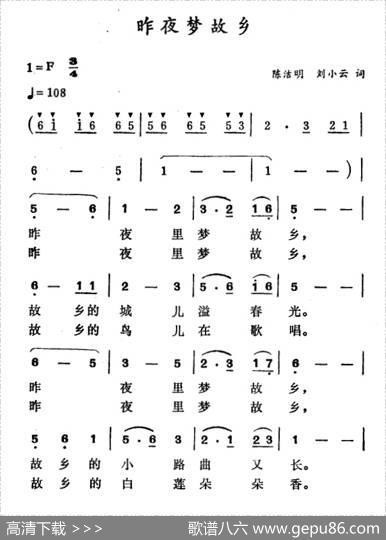 昨夜梦故乡
1=F 3/4
陈洁明 刘小云 词
♩=108
(6 i i 6 i 6 | 5 6 6 5 5 3 | 2 · 3 2 1 |
6 — 5 | 1 — — | 1 — — ) |
5 — 6 | 1 — 2 | 3 · 2 1 6 | 5 — — |
昨 夜 里 梦 故 乡,
昨 夜 里 梦 故 乡,
6 — 1 1 | 2 — 3 | 5 · 6 1 6 | 5 — — |
故 乡 的 城 儿 溢 春 光。
故 乡 的 鸟 儿 在 歌 唱。
6 — 5 | 3 — 5 | 2 · 3 1 7 | 6 — — |
昨 夜 里 梦 故 乡,
昨 夜 里 梦 故 乡,
5 6 1 | 5 · 6 3 | 2 · 1 2 3 | 1 — — |
故 乡 的 小 路 曲 又 长。
故 乡 的 白 莲 朵 朵 香。
高清下载 >>> 歌谱八六 www.gepu86.com